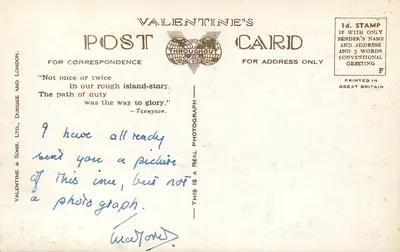 VALENTINE'S
POST CARD
THROUGHOUT
FOR CORRESPONDENCE
FOR ADDRESS ONLY
1d. STAMP
IF WITH ONLY
SENDER'S NAME
AND ADDRESS
AND 5 WORDS
CONVENTIONAL
GREETING
F
PRINTED IN
GREAT BRITAIN
"Not once or twice
in our rough island-story,
The path of duty
was the way to glory."
—TENNYSON.
VALENTINE & SONS, LTD., DUNDEE AND LONDON.
—THIS IS A REAL PHOTOGRAPH—
I have allready
send you a picture
of this inn, but not
a photograph.